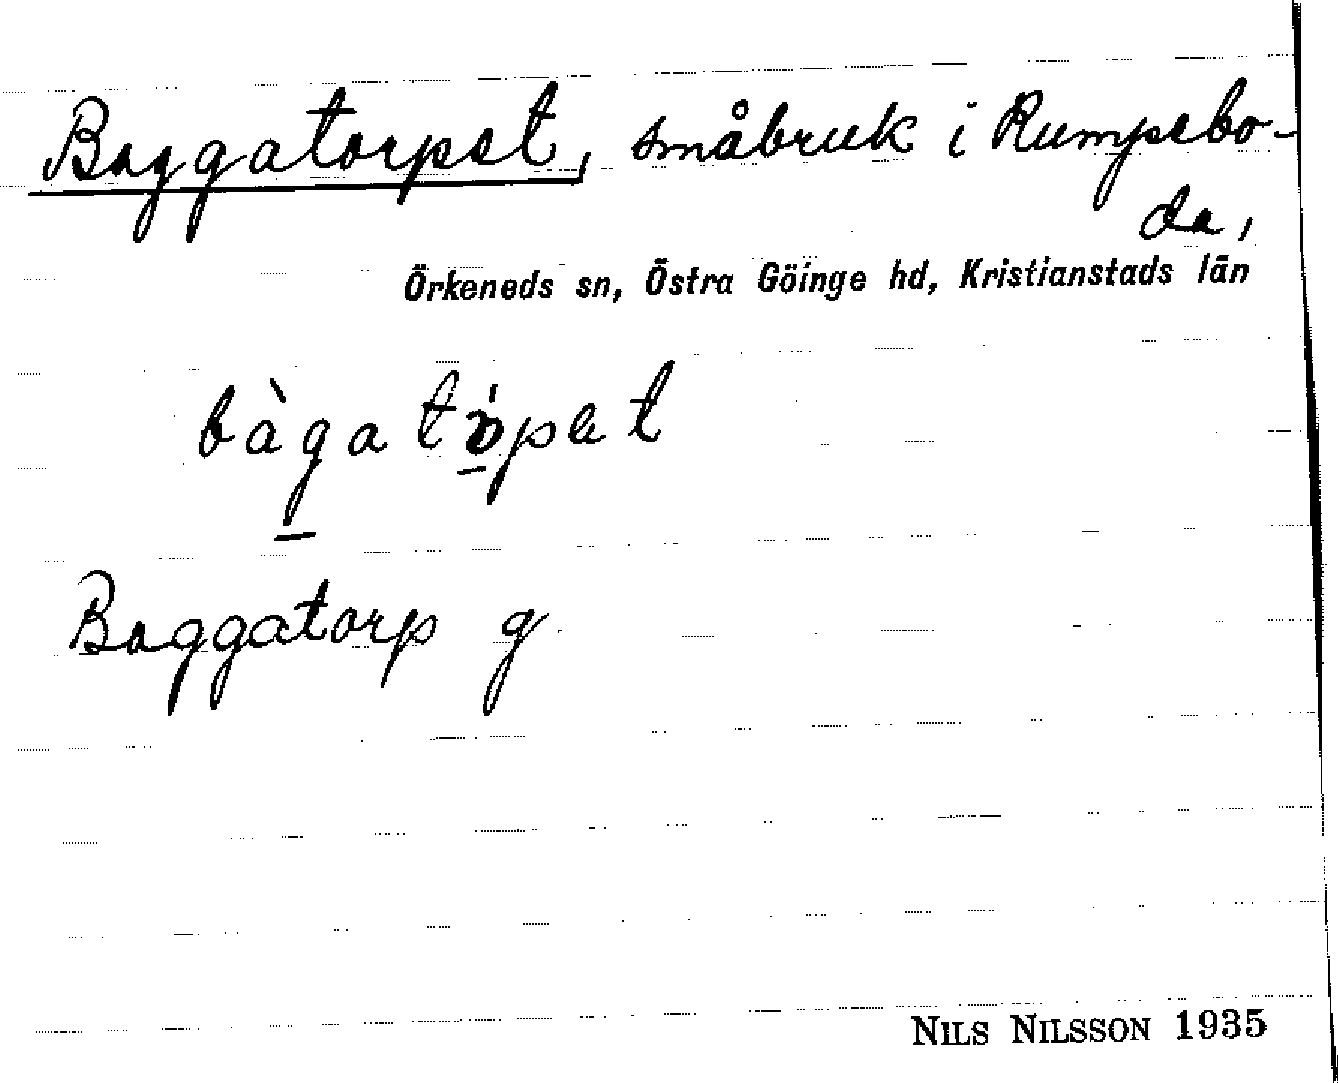 Baggatorpet, småbruk i Rumpebo-
da,
Örkeneds sn, Östra Göinge hd, Kristianstads län
bàgatòpet
Baggatorp g
NILS NILSSON 1935